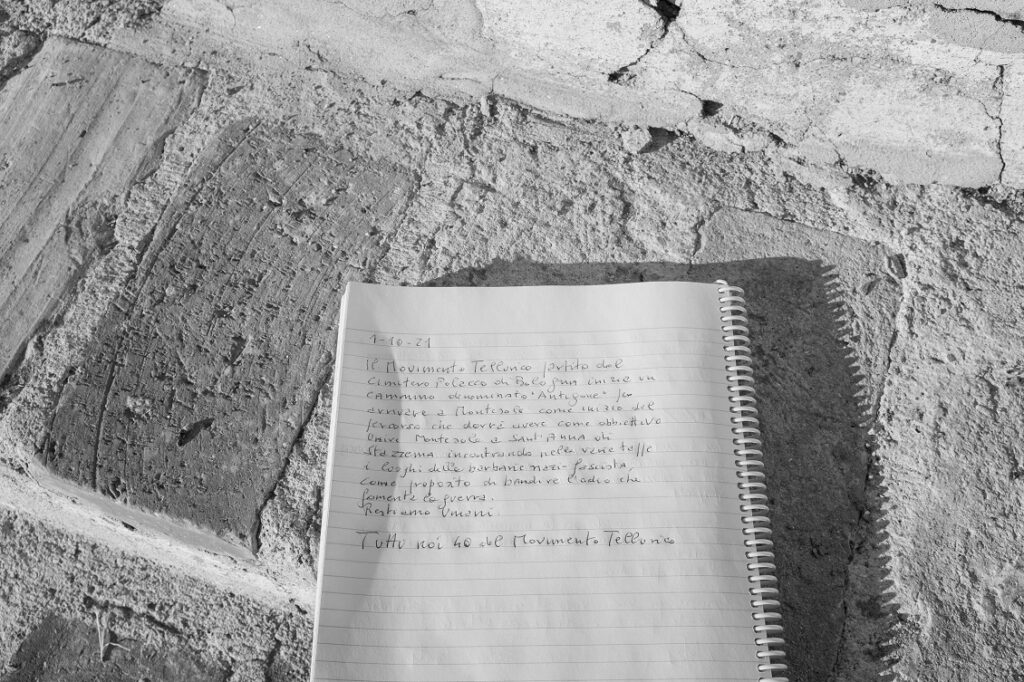 1-10-21
Il Movimento Tellurico partito dal
Cimitero Polacco di Bologna inizia un
cammino denominato "Antigone" per
arrivare a Montesole come inizio del
percorso che dovrà avere come obbiettivo
Unire Montesole a Sant'Anna di
Stazzema incontrando nelle varie tappe
i luoghi della barbarie nazi-fascista,
come proposito di bandire l'odio che
fomenta la guerra.
Restiamo Umani.
Tutti noi 40 del Movimento Tellurico